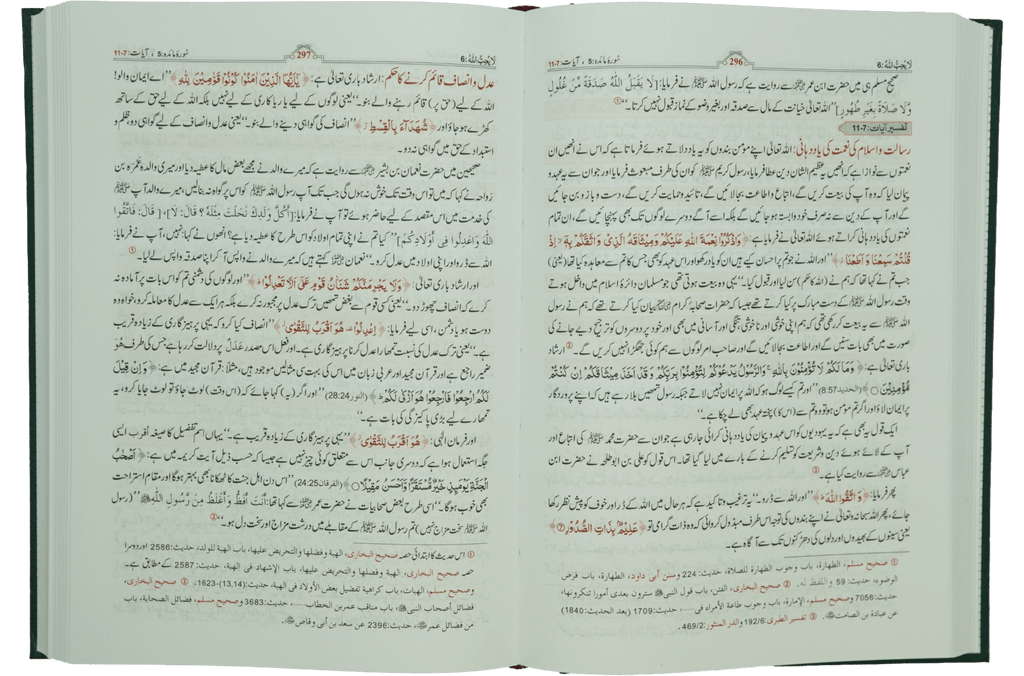 لَا يُحِبُّ اللّٰهُ :6
296
سُورَۂ مائدہ :5 ، آیات: 7-11
صحیح مسلم ہی میں حضرت ابن عمر ؓ سے روایت ہے کہ رسول اللہ ﷺ نے فرمایا: [لَا یَقْبَلُ اللّٰهُ صَدَقَةً مِّنْ غُلُولٍ
وَّلَا صَلَاةً بِغَيْرِ طُهُورٍ] ’’اللہ تعالیٰ خیانت کے مال سے صدقہ اور بغیر وضو کے نماز قبول نہیں کرتا۔‘‘①
تفسیر آیات: 7-11
رسالت و اسلام کی نعمت کی یاد دہانی: اللہ تعالیٰ اپنے مومن بندوں کو یہ یاد دلاتے ہوئے فرماتا ہے کہ اس نے انھیں ان
نعمتوں سے نوازا ہے کہ انھیں یہ عظیم الشان دین عطا فرمایا، رسول کریم ﷺ کو ان کی طرف مبعوث فرمایا اور ان سے یہ عہد و
پیمان لیا کہ وہ آپ کی بیعت کریں گے، اتباع و اطاعت بجا لائیں گے، تائید و حمایت کریں گے، دست و بازو بن جائیں
گے اور آپ کے دین سے نہ صرف خود وابستہ ہو جائیں گے بلکہ اسے آگے دوسرے لوگوں تک بھی پہنچائیں گے، ان تمام
نعمتوں کی یاد دہانی کراتے ہوئے اللہ تعالیٰ نے فرمایا ہے: ﴿وَاذْكُرُوْا نِعْمَةَ اللّٰهِ عَلَيْكُمْ وَمِيْثَاقَهُ الَّذِيْ وَاثَقَكُمْ بِهٖٓ ۙ اِذْ
قُلْتُمْ سَمِعْنَا وَاَطَعْنَا ۡ﴾ ’’اور اللہ نے جو تم پر احسان کیے ہیں ان کو یاد رکھو اور اس عہد کو بھی جس کا تم سے معاہدہ کیا تھا (یعنی)
جب تم نے کہا تھا کہ ہم نے (اللہ کا حکم) سن لیا اور قبول کیا۔‘‘ یہی وہ بیعت ہوتی تھی جو مسلمان دائرۂ اسلام میں داخل ہوتے
وقت رسول اللہ ﷺ کے دست مبارک پر کیا کرتے تھے جیسا کہ حضرات صحابۂ کرام ؓ بیان کیا کرتے تھے کہ ہم نے رسول
اللہ ﷺ سے یہ بیعت کر رکھی تھی کہ ہم اپنی خوشی اور ناخوشی، تنگی اور آسانی میں بھی اور خود پر دوسروں کو ترجیح دیے جانے کی
صورت میں بھی بات سنیں گے اور اطاعت بجا لائیں گے اور صاحب امر لوگوں سے ہم کوئی جھگڑا نہیں کریں گے۔② ارشاد
باری تعالیٰ ہے: ﴿وَمَا لَكُمْ لَا تُؤْمِنُوْنَ بِاللّٰهِ ۚ وَالرَّسُوْلُ يَدْعُوْكُمْ لِتُؤْمِنُوْا بِرَبِّكُمْ وَقَدْ اَخَذَ مِيْثَاقَكُمْ اِنْ كُنْتُمْ
مُّؤْمِنِيْنَ ○﴾ (الحدید 8:57) ’’اور تم کیسے لوگ ہو کہ اللہ پر ایمان نہیں لاتے جبکہ رسول تمھیں بلا رہے ہیں کہ اپنے پروردگار
پر ایمان لاؤ اور اگر تم مومن ہو تو وہ تم سے (اس کا) پختہ عہد بھی لے چکا ہے۔‘‘
ایک قول یہ بھی ہے کہ یہ یہودیوں کو اس عہد و پیمان کی یاد دہانی کرائی جا رہی ہے جو ان سے حضرت محمد ﷺ کی اتباع اور
آپ کے لائے ہوئے دین و شریعت کو تسلیم کرنے کے بارے میں لیا گیا تھا۔ اس قول کو علی بن ابو طلحہ نے حضرت ابن
عباس ؓ سے روایت کیا ہے۔③
پھر فرمایا: ﴿وَاتَّقُوا اللّٰهَ ۭ﴾ ’’اور اللہ سے ڈرو۔‘‘ یہ ترغیب و تاکید ہے کہ ہر حال میں اللہ کے ڈر اور خوف کو پیش نظر رکھا
جائے، پھر اللہ سبحانہ و تعالیٰ نے اپنے بندوں کی توجہ اس طرف مبذول کروائی کہ وہ ذات گرامی تو ﴿عَلِيْمٌۢ بِذَاتِ الصُّدُوْرِ ⑦﴾
یعنی سینوں کے بھیدوں اور دلوں کی دھڑکنوں تک سے آگاہ ہے۔
① صحیح مسلم، الطهارة، باب وجوب الطهارة للصلاة، حدیث: 224 وسنن أبی داود، الطهارة، باب فرض
الوضوء، حدیث: 59 واللفظ له. ② صحیح البخاری، الفتن، باب قول النبی ﷺ سترون بعدی أمورا تنکرونها،
حدیث: 7056 وصحیح مسلم، الإمارة، باب وجوب طاعة الأمراء فی .....، حدیث: 1709 (بعد الحدیث: 1840)
عن عبادة بن الصامت ؓ. ③ تفسیر الطبری: 192/6 والدر المنثور: 469/2.
لَا يُحِبُّ اللّٰهُ :6
297
سُورَۂ مائدہ :5 ، آیات: 7-11
عدل و انصاف قائم کرنے کا حکم: ارشاد باری تعالیٰ ہے: ﴿يٰٓاَيُّهَا الَّذِيْنَ اٰمَنُوْا كُوْنُوْا قَوّٰمِيْنَ لِلّٰهِ﴾ ’’اے ایمان والو!
اللہ کے لیے (حق پر) قائم رہنے والے بنو۔‘‘ یعنی لوگوں کے لیے یا ریا کاری کے لیے نہیں بلکہ اللہ کے لیے حق کے ساتھ
کھڑے ہو جاؤ اور ﴿شُهَدَآءَ بِالْقِسْطِ ۡ﴾ ’’انصاف کی گواہی دینے والے بنو۔‘‘ یعنی عدل و انصاف کے لیے گواہی دو، ظلم و
استبداد کے حق میں گواہی نہ دو۔
صحیحین میں حضرت نعمان بن بشیر ؓ سے روایت ہے کہ میرے والد نے مجھے بعض مال کا عطیہ دیا اور میری والدہ عمرہ بنت
رواحہ نے کہا کہ میں تو اس وقت تک خوش نہ ہوں گی جب تک آپ رسول اللہ ﷺ کو اس پر گواہ نہ بنا لیں، میرے والد آپ ﷺ
کی خدمت میں اس مقصد کے لیے حاضر ہوئے تو آپ نے فرمایا: [أَكُلَّ وَلَدِكَ نَحَلْتَ مِثْلَهُ؟ قَالَ: لَا]، [قَالَ: فَاتَّقُوا
اللّٰهَ وَاعْدِلُوا فِي أَوْلَادِكُمْ] ’’کیا تم نے اپنی تمام اولاد کو اس طرح کا عطیہ دیا ہے؟ انھوں نے کہا: نہیں، آپ نے فرمایا:
اللہ سے ڈرو اور اپنی اولاد میں عدل کرو۔‘‘ نعمان ؓ کہتے ہیں کہ میرے والد نے واپس آ کر اپنا صدقہ واپس لے لیا۔①
اور ارشاد باری تعالیٰ: ﴿وَلَا يَجْرِمَنَّكُمْ شَنَاٰنُ قَوْمٍ عَلٰٓى اَلَّا تَعْدِلُوْا ۭ﴾ ’’اور لوگوں کی دشمنی تم کو اس بات پر آمادہ نہ
کرے کہ انصاف چھوڑ دو۔‘‘ یعنی کسی قوم سے بغض تمھیں ترک عدل پر مجبور نہ کرے بلکہ ہر ایک سے عدل کا معاملہ کرو، خواہ وہ
دوست ہو یا دشمن، اسی لیے فرمایا: ﴿اِعْدِلُوْا ۣ هُوَ اَقْرَبُ لِلتَّقْوٰى ۡ﴾ ’’انصاف کیا کرو کہ یہی پرہیز گاری کے زیادہ قریب
ہے۔‘‘ یعنی ترک عدل کی نسبت تمھارا عدل کرنا پرہیز گاری ہے۔ اور فعل اس مصدر عَدْل پر دلالت کر رہا ہے جس کی طرف هُوَ
ضمیر راجع ہے اور قرآن مجید اور عربی زبان میں اس کی بہت سی مثالیں موجود ہیں، مثلاً: قرآن مجید میں ہے: ﴿وَاِنْ قِيْلَ
لَكُمُ ارْجِعُوْا فَارْجِعُوْا هُوَ اَزْكٰى لَكُمْ ۭ﴾ (النور 28:24) ’’اور اگر (یہ) کہا جائے کہ (اس وقت) لوٹ جاؤ تو لوٹ جایا کرو، یہ
تمھارے لیے بڑی پاکیزگی کی بات ہے۔‘‘
اور فرمان الٰہی: ﴿هُوَ اَقْرَبُ لِلتَّقْوٰى ۡ﴾ ’’یہی پرہیز گاری کے زیادہ قریب ہے۔‘‘ یہاں اسم تفضیل کا صیغہ أقرب ایسی
جگہ استعمال ہوا ہے کہ دوسری جانب اس سے متعلق کوئی چیز نہیں ہے جیسا کہ حسب ذیل آیت کریمہ میں ہے: ﴿اَصْحٰبُ
الْجَنَّةِ يَوْمَىِٕذٍ خَيْرٌ مُّسْتَقَرًّا وَّاَحْسَنُ مَقِيْلًا ○﴾ (الفرقان 24:25) ’’اس دن اہل جنت کا ٹھکانا بھی بہتر ہوگا اور مقام استراحت
بھی خوب ہوگا۔‘‘ اسی طرح بعض صحابیات نے حضرت عمر ؓ سے کہا تھا: أَنْتَ أَفَظُّ وَأَغْلَظُ مِنْ رَّسُولِ اللّٰهِ ﷺ ’’(رسول
اللہ ﷺ سخت مزاج نہیں) تم رسول اللہ ﷺ کے مقابلے میں درشت مزاج اور سخت دل ہو۔‘‘②
① اس حدیث کا ابتدائی حصہ صحیح البخاری، الهبة وفضلها والتحریض علیها، باب الهبة للولد، حدیث: 2586 اور دوسرا
حصہ صحیح البخاری، الهبة وفضلها والتحریض علیها، باب الإشهاد فی الهبة، حدیث: 2587 کے مطابق ہے۔
وصحیح مسلم، الهبات، باب کراهیة تفضیل بعض الأولاد فی الهبة، حدیث: (13,14)-1623. ② صحیح البخاری،
فضائل أصحاب النبی ﷺ، باب مناقب عمربن الخطاب .....، حدیث: 3683 وصحیح مسلم، فضائل الصحابة، باب
من فضائل عمر ؓ، حدیث: 2396 عن سعد بن أبی وقاص ؓ.